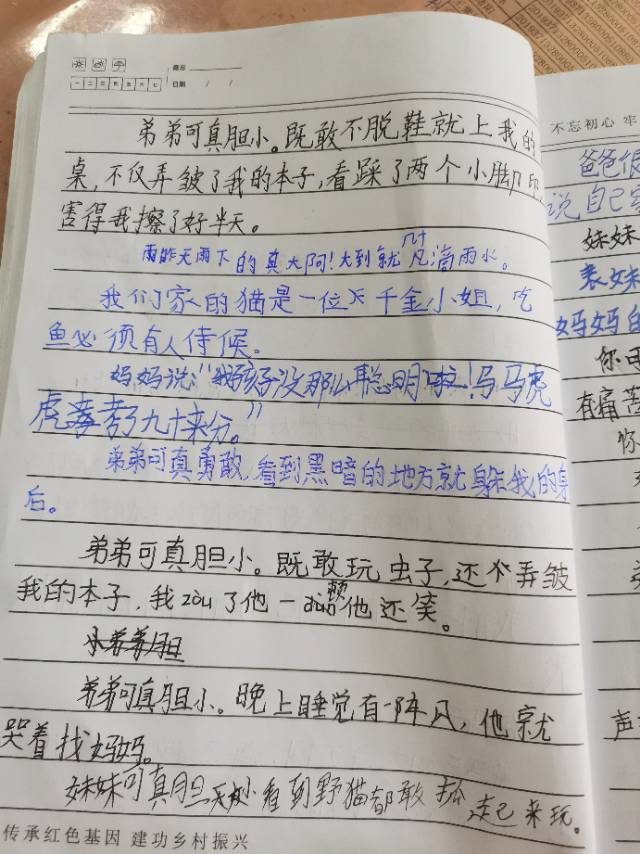 弟弟可真胆小。既敢不脱鞋就上我的
桌,不仅弄皱了我的本子,看踩了两个小脚印
害得我擦了好半天。
雨昨天雨下的真大阿!大到就几十几滴雨水。
我们家的猫是一位大千金小姐,吃
鱼必须有人侍候。
妈妈说:“我孩子没那么聪明啦!马马虎
虎考了九十来分。”
弟弟可真勇敢,看到黑暗的地方就躲我的身
后。
弟弟可真胆小。既敢玩虫子,还个弄皱
我的本子,我zòu了他一顿他还笑。
小弟弟胆
弟弟可真胆小。晚上睡觉有一阵风,他就
哭着找妈妈。
妹妹可真胆小看到野猫都敢抓起来玩。
传承红色基因 建功乡村振兴
不忘初心 牢
爸爸很
说自己
妹妹
表妹
妈妈的
你可
有痛苦
你
声